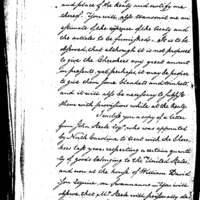 and place of the treaty and notify me
thereof. You will also transmit me an
estimate of the expence of the treaty and
the articles to be furnished. It is to be
observed, that although it is not proposed
to give the Cherokees any great amount
in presents, yet perhaps, it may be proper
to give them some blankets and
and it will also be necessary to supply
them with provisions while at the treaty.
I enclose you a copy of a letter
from John Steele Esqr. who was appointed
by North Carolina to treat with the Chero-
kees last year respecting a certain quanti-
ty of goods belonging to the United States,
and now at the house of William David-
son Esquire, on Swannanoe. You will
observe that Mr. Steele will personally de-